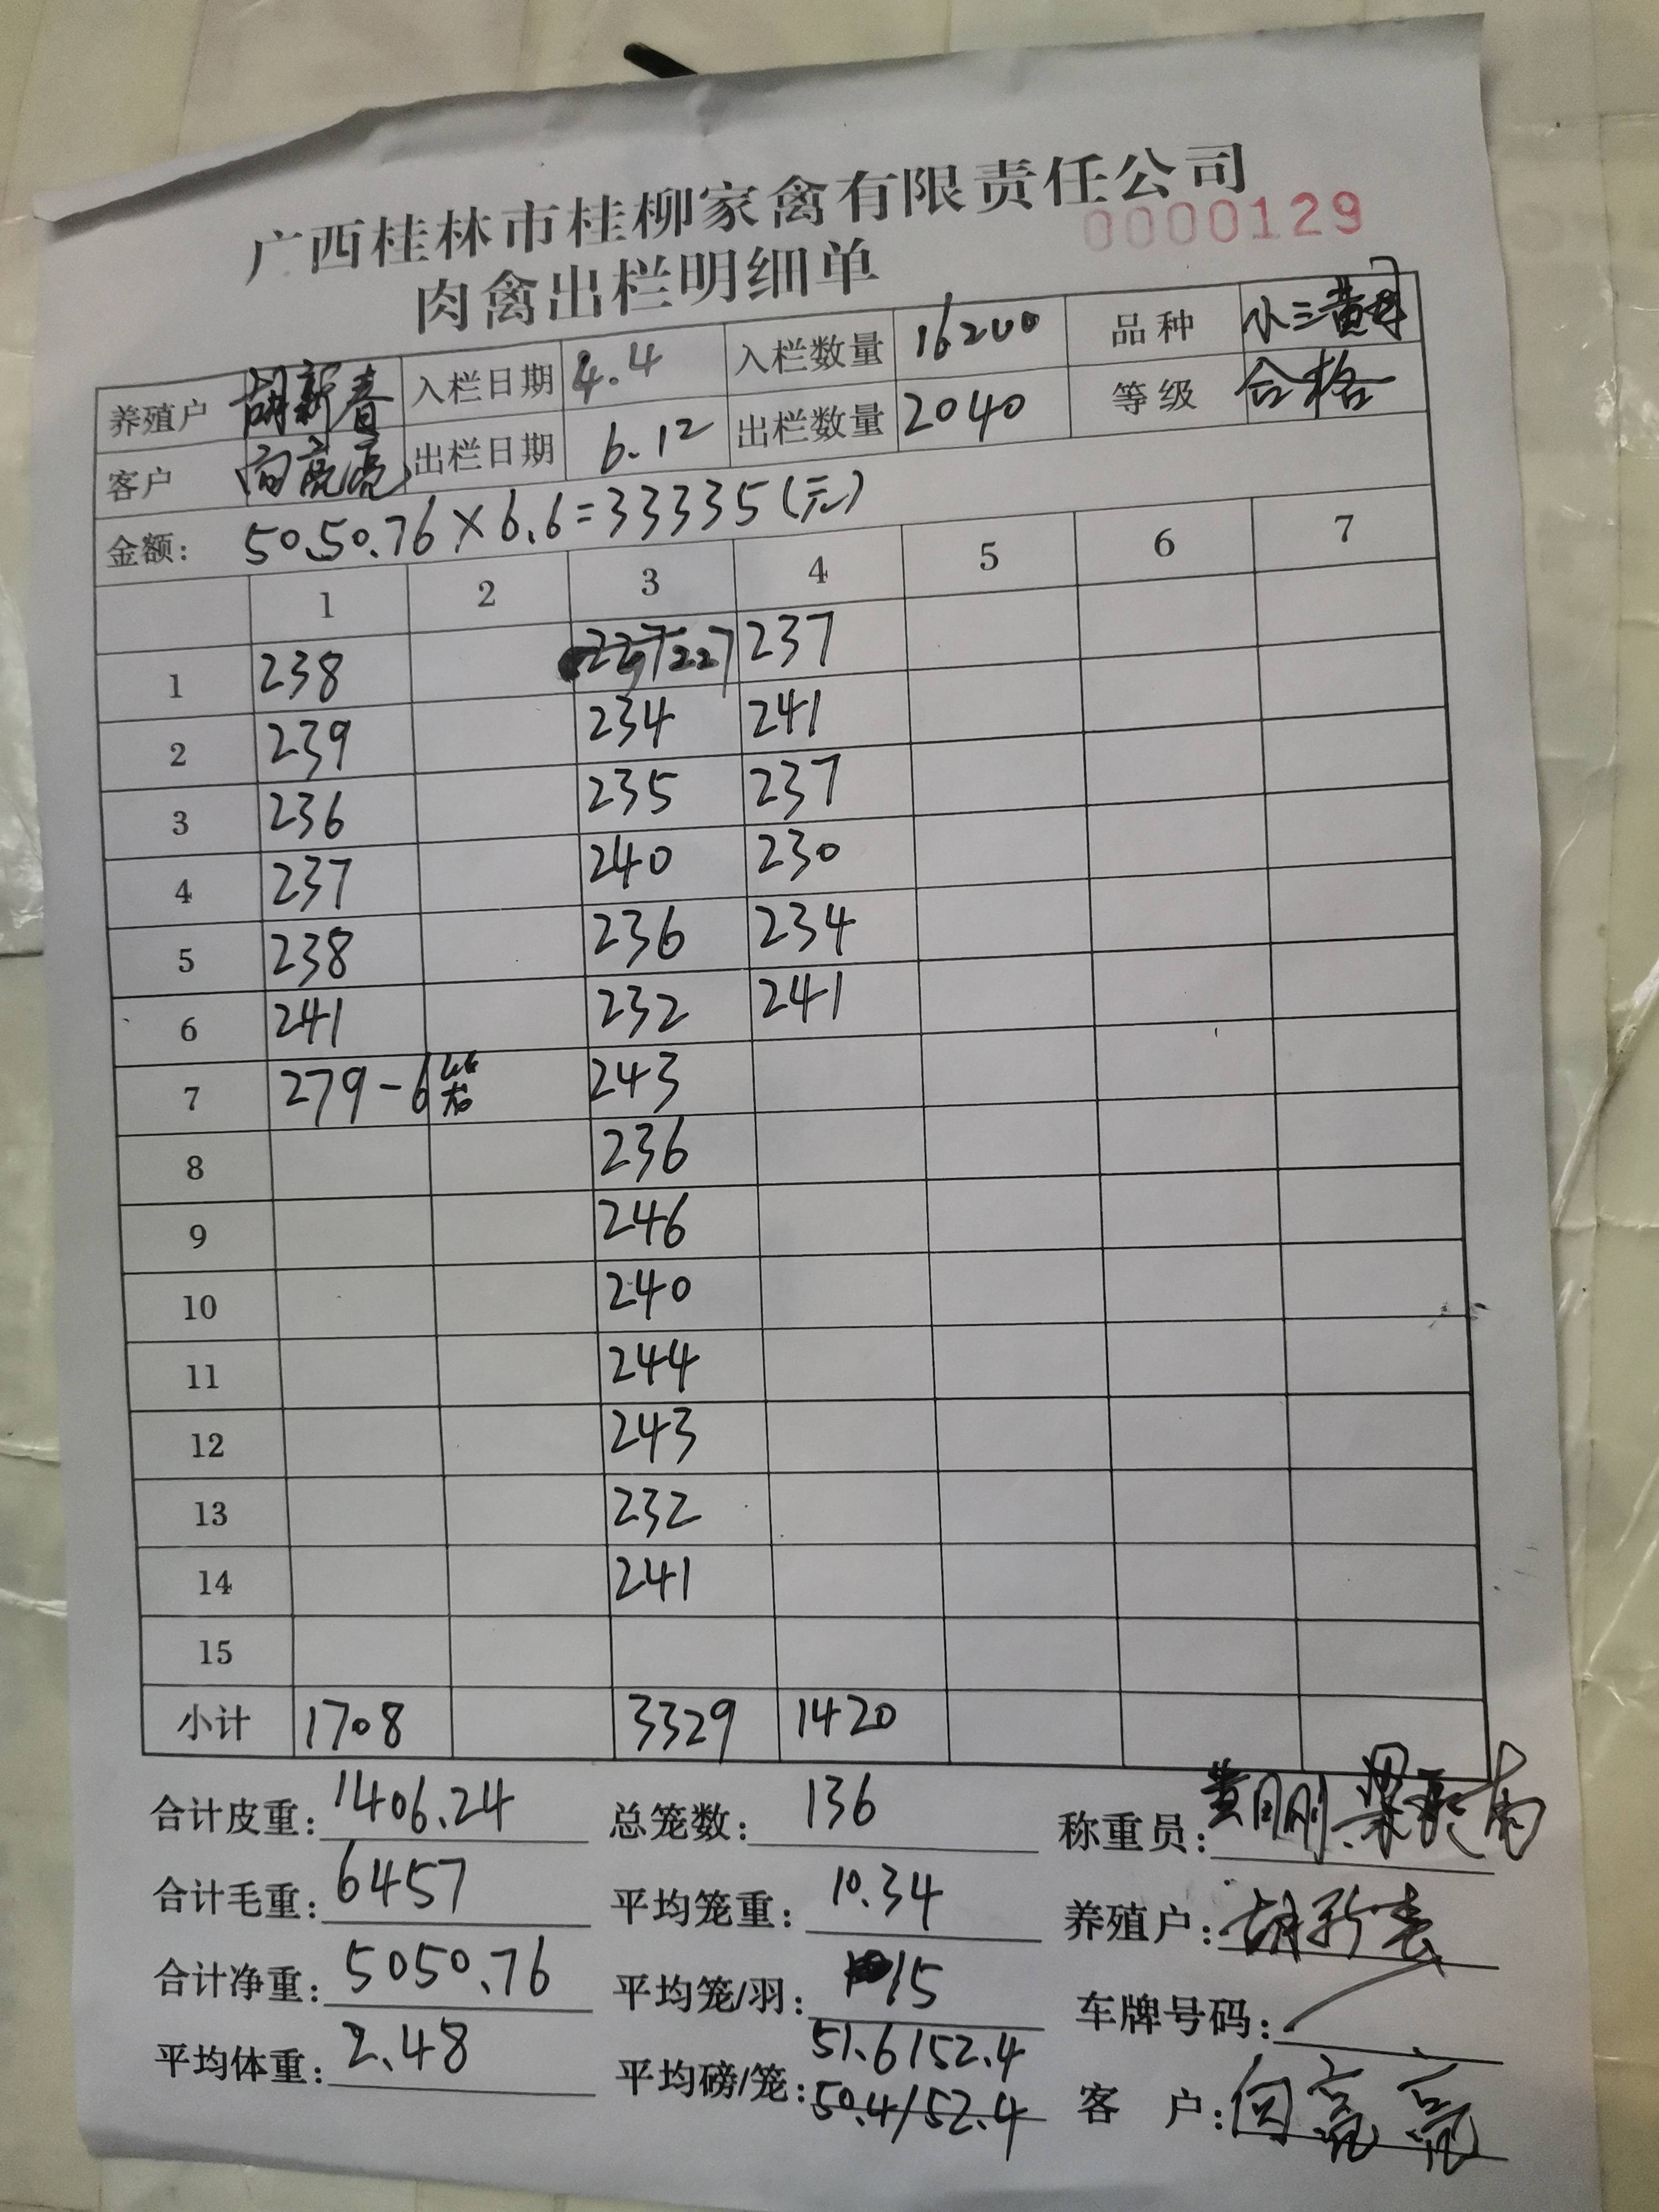 广西桂林市桂柳家禽有限责任公司
0000129
肉禽出栏明细单
养殖户 胡新春 入栏日期 4.4 入栏数量 16200 品种 小三黄母
客户 向亮亮 出栏日期 6.12 出栏数量 2040 等级 合格
金额: 50.50.76×6.6=33335(元)
1 2 3 4 5 6 7
1 238 227 237
2 239 234 241
3 236 235 237
4 237 240 230
5 238 236 234
6 241 232 241
7 279-6 243
8 236
9 246
10 240
11 244
12 243
13 232
14 241
15
小计 1708 3329 1420
合计皮重: 1406.24 总笼数: 136 称重员:
合计毛重: 6457 平均笼重: 10.34 养殖户: 胡新春
合计净重: 5050.76 平均笼/羽: 15 车牌号码:
平均体重: 2.48 平均磅/笼: 51.6/52.4 客户: 向亮亮
50.4/52.4